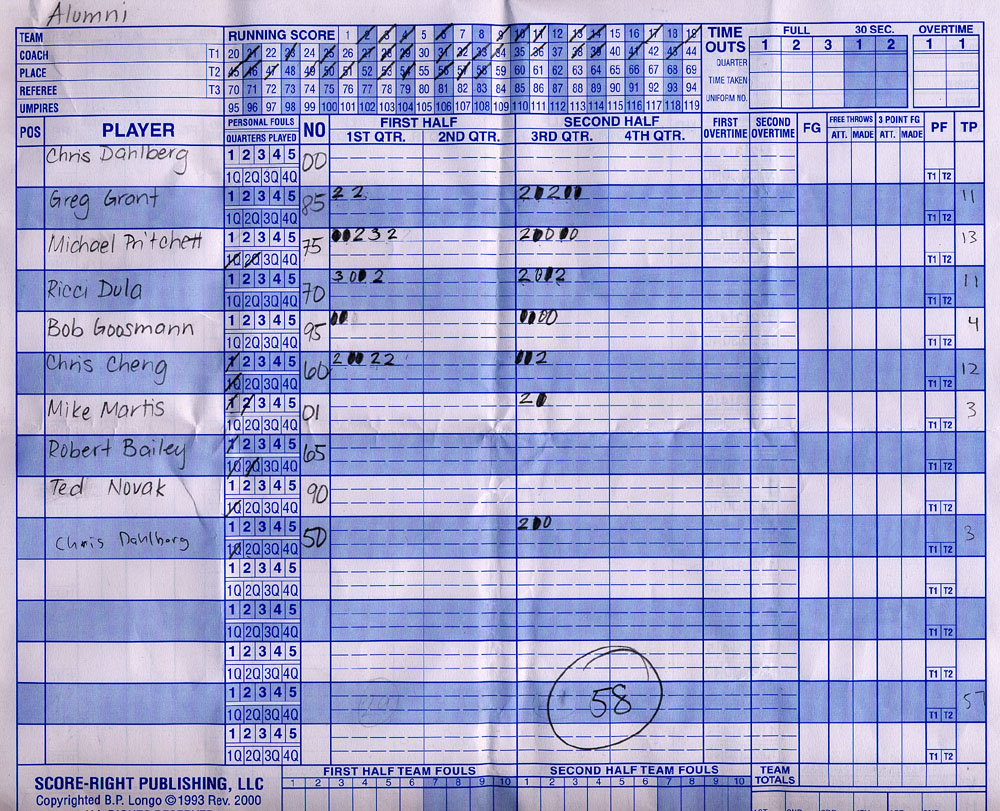 Alumni
TEAM RUNNING SCORE 1 2 3 4 5 6 7 8 9 10 11 12 13 14 15 16 17 18 19 TIME OUTS FULL 30 SEC. OVERTIME
COACH T1 20 21 22 23 24 25 26 27 28 29 30 31 32 33 34 35 36 37 38 39 40 41 42 43 44 1 2 3 1 2 1 1
PLACE T2 45 46 47 48 49 50 51 52 53 54 55 56 57 58 59 60 61 62 63 64 65 66 67 68 69 QUARTER
REFEREE T3 70 71 72 73 74 75 76 77 78 79 80 81 82 83 84 85 86 87 88 89 90 91 92 93 94 TIME TAKEN
UMPIRES 95 96 97 98 99 100 101 102 103 104 105 106 107 108 109 110 111 112 113 114 115 116 117 118 119 UNIFORM NO.
POS PLAYER PERSONAL FOULS QUARTERS PLAYED NO FIRST HALF 1ST QTR. 2ND QTR. SECOND HALF 3RD QTR. 4TH QTR. FIRST OVERTIME SECOND OVERTIME FG FREE THROWS ATT. MADE 3 POINT FG ATT. MADE PF TP
Chris Dahlberg 1 2 3 4 5 00
1Q 2Q 3Q 4Q T1 T2
Greg Grant 1 2 3 4 5 85 2 2 11
1Q 2Q 3Q 4Q T1 T2
Michael Pritchett 1 2 3 4 5 75 2 3 2 13
1Q 2Q 3Q 4Q T1 T2
Ricci Dula 1 2 3 4 5 70 11
1Q 2Q 3Q 4Q T1 T2
Bob Goosmann 1 2 3 4 5 95 4
1Q 2Q 3Q 4Q T1 T2
Chris Cheng 1 2 3 4 5 60 12
1Q 2Q 3Q 4Q T1 T2
Mike Martis 1 2 3 4 5 01 2 3
1Q 2Q 3Q 4Q T1 T2
Robert Bailey 1 2 3 4 5 65
1Q 2Q 3Q 4Q T1 T2
Ted Novak 1 2 3 4 5 90
1Q 2Q 3Q 4Q T1 T2
Chris Dahlberg 1 2 3 4 5 50 2 3
1Q 2Q 3Q 4Q T1 T2
1 2 3 4 5
1Q 2Q 3Q 4Q T1 T2
1 2 3 4 5
1Q 2Q 3Q 4Q T1 T2
1 2 3 4 5
1Q 2Q 3Q 4Q T1 T2
1 2 3 4 5 58 57
1Q 2Q 3Q 4Q T1 T2
1 2 3 4 5
1Q 2Q 3Q 4Q T1 T2
SCORE-RIGHT PUBLISHING, LLC FIRST HALF TEAM FOULS SECOND HALF TEAM FOULS TEAM TOTALS
1 2 3 4 5 6 7 8 9 10 1 2 3 4 5 6 7 8 9 10
Copyrighted B.P. Longo © 1993 Rev. 2000